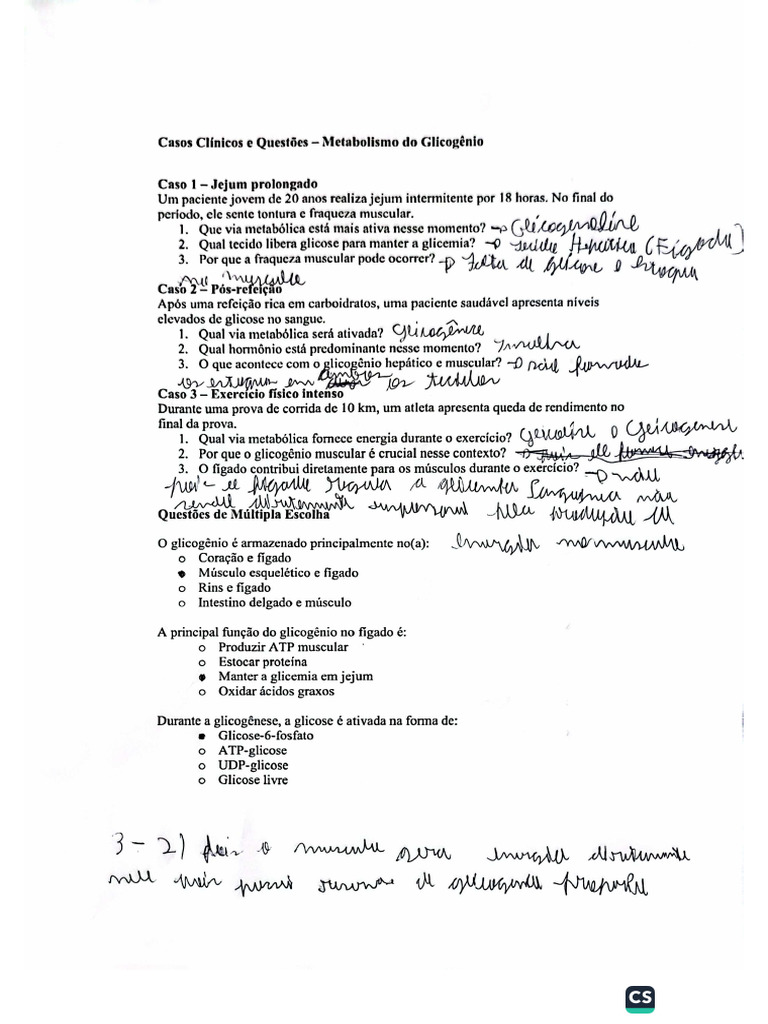 Casos Clínicos e Questões – Metabolismo do Glicogênio
Caso 1 – Jejum prolongado
Um paciente jovem de 20 anos realiza jejum intermitente por 18 horas. No final do
período, ele sente tontura e fraqueza muscular.
1. Que via metabólica está mais ativa nesse momento? → Glicogenolise
2. Qual tecido libera glicose para manter a glicemia? → Tecido Hepatico (Figado)
3. Por que a fraqueza muscular pode ocorrer? → Falta de glicose e
no musculo
Caso 2 – Pós-refeição
Após uma refeição rica em carboidratos, uma paciente saudável apresenta níveis
elevados de glicose no sangue.
1. Qual via metabólica será ativada? Glicogênese
2. Qual hormônio está predominante nesse momento? Insulina
3. O que acontece com o glicogênio hepático e muscular? →
os estoques em ambos os tecidos
Caso 3 – Exercício físico intenso
Durante uma prova de corrida de 10 km, um atleta apresenta queda de rendimento no
final da prova.
1. Qual via metabólica fornece energia durante o exercício?
2. Por que o glicogênio muscular é crucial nesse contexto?
3. O fígado contribui diretamente para os músculos durante o exercício? →
a glicemia sanguinea não
pela produção de
Questões de Múltipla Escolha
energia no musculo
O glicogênio é armazenado principalmente no(a):
Coração e fígado
Músculo esquelético e fígado
Rins e fígado
Intestino delgado e músculo
A principal função do glicogênio no fígado é:
Produzir ATP muscular
Estocar proteína
Manter a glicemia em jejum
Oxidar ácidos graxos
Durante a glicogênese, a glicose é ativada na forma de:
Glicose-6-fosfato
ATP-glicose
UDP-glicose
Glicose livre
3 – 2) pois o musculo gera energia diretamente
nele pois possui reserva de glicogenio
CS